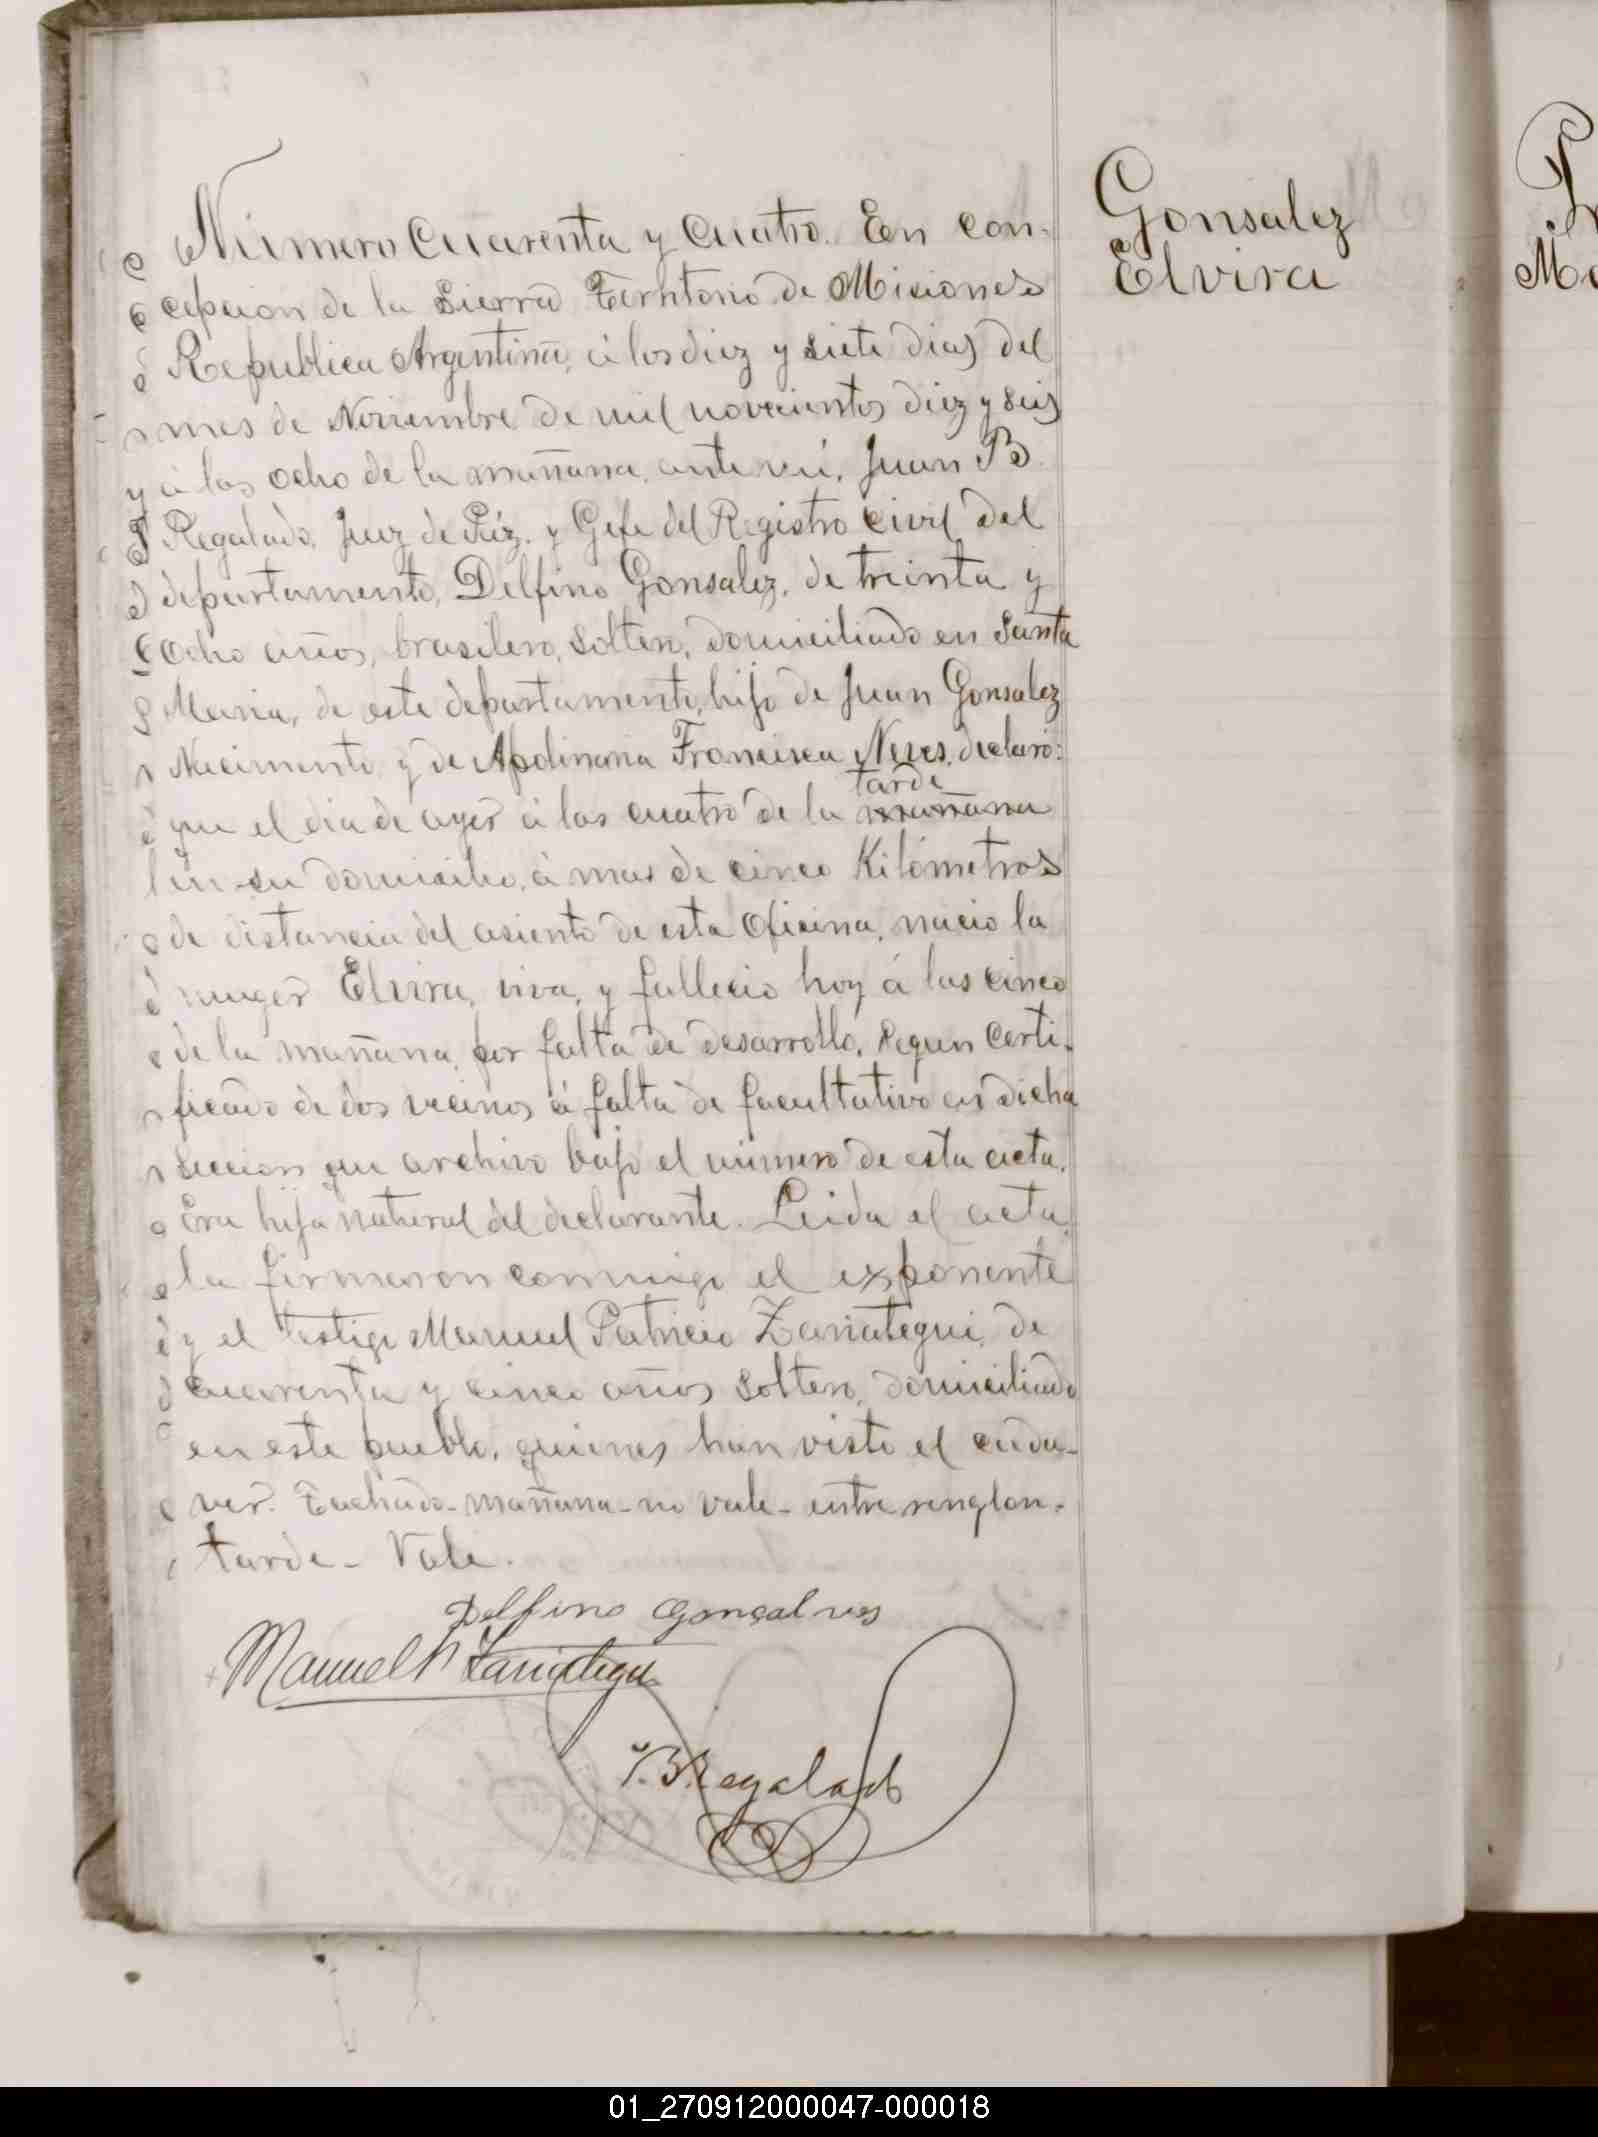 Número Cuarenta y Cuatro. En Con-
cepcion de la Sierra Territorio de Misiones
Republica Argentina, á los diez y siete dias del
mes de Noviembre de mil novecientos diez y seis
y á las ocho de la mañana, ante mi, Juan B
Regalado, Juez de Páz. y Gefe del Registro Civil del
departamento, Delfino Gonsalez, de treinta y
ocho años, brasilero, soltero, domiciliado en Santa
Maria, de este departamento, hijo de Juan Gonsalez
Nacimento y de Apolinaria Francisca Neves, declaró:
tarde
que el dia de ayer á las cuatro de la mañana
en su domicilio, á mas de cinco Kilómetros
de distancia del asiento de esta Oficina, nació la
muger Elvira, viva, y falleció hoy á las cinco
de la mañana, por falta de desarrollo, segun Certi-
ficado de dos vecinos á falta de facultativo en dicha
seccion que archivo bajo el número de esta acta.
Era hija natural del declarante. Leida el acta
la firmaron conmigo el exponente
y el testigo Manuel Patricio Zariategui, de
cuarenta y cinco años soltero, domiciliado
en este pueblo, quienes han visto el cada-
ver. Tachado - mañana - no vale - entre renglon -
tarde - Vale.
Delfino Gonçalves
Manuel P. Zariategui
J. B. Regalado
Gonsalez
Elvira
01_270912000047-000018